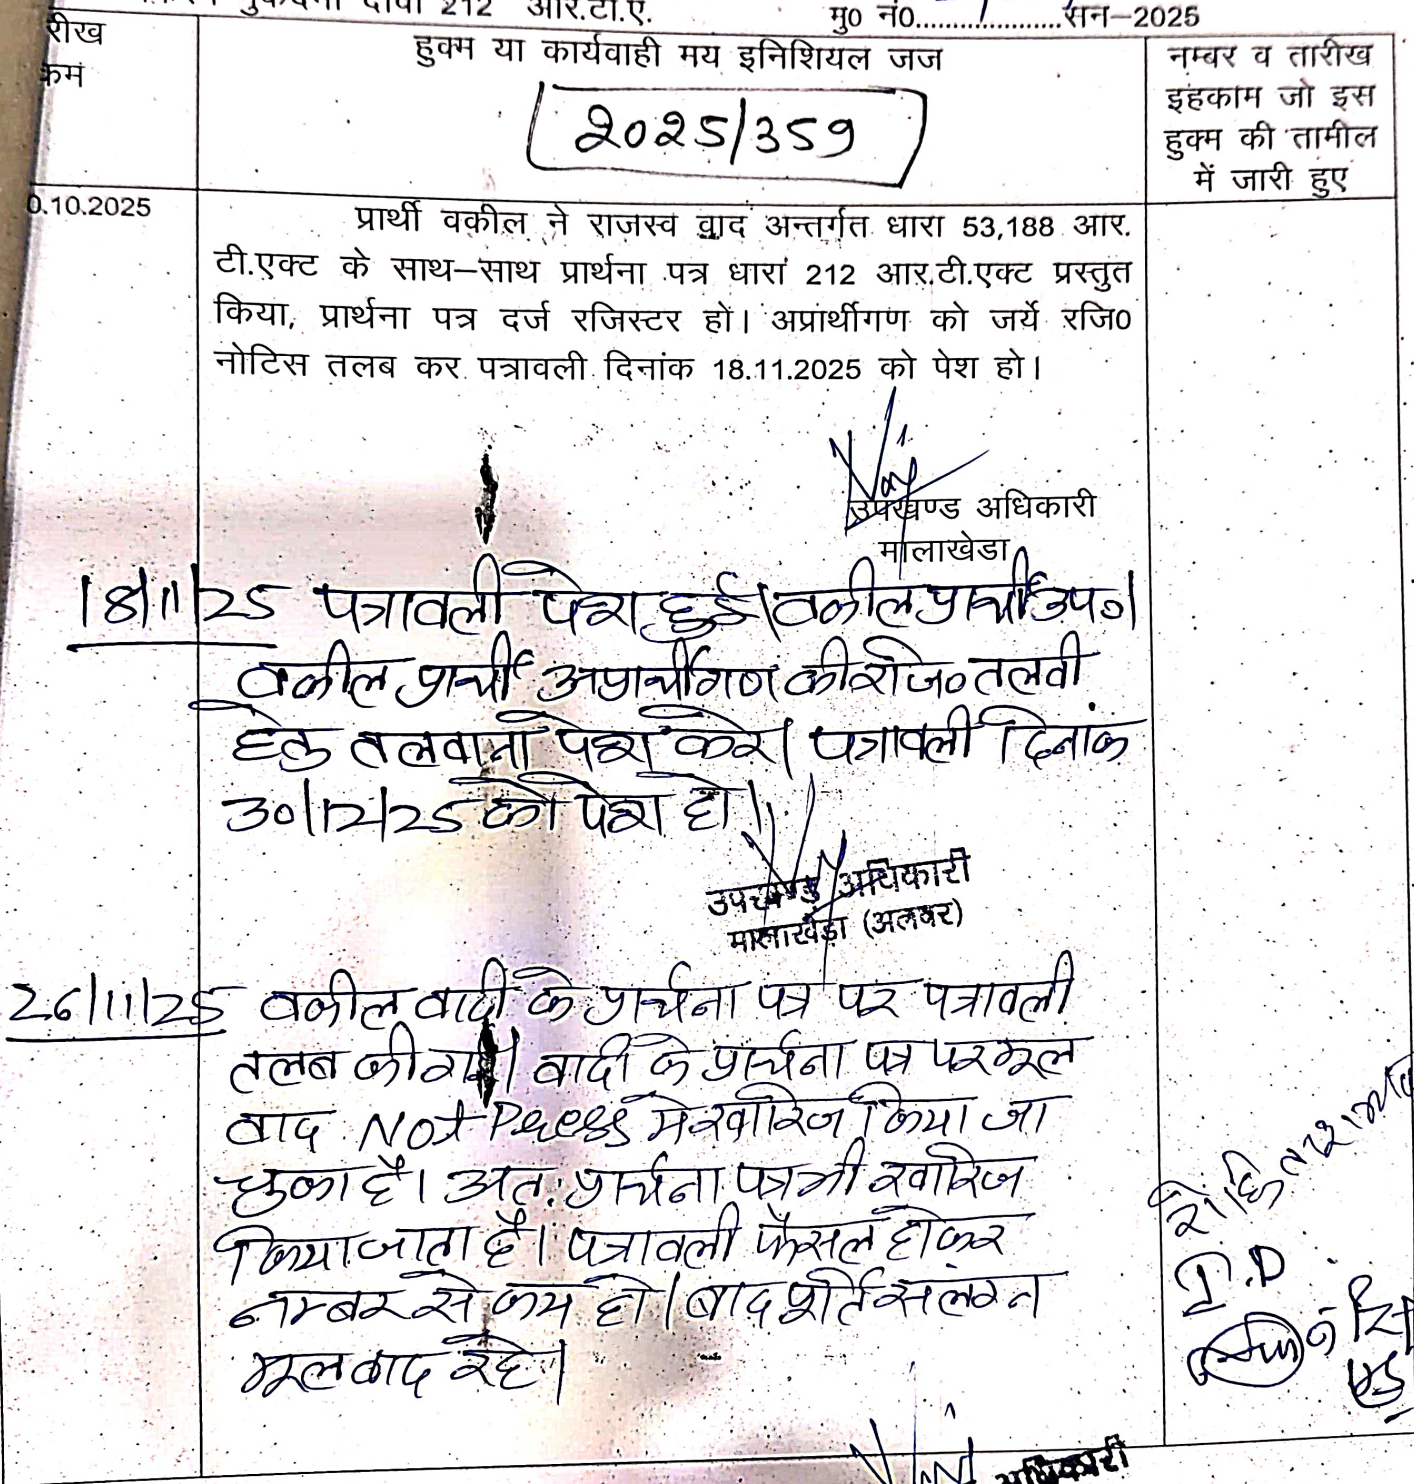 दावा 212 आर.टी.ए. मु0 नं0.....................सन–2025
रीख
हुक्म या कार्यवाही मय इनिशियल जज
2025/359
नम्बर व तारीख
इहकाम जो इस
हुक्म की तामील
में जारी हुए
0.10.2025
प्रार्थी वकील ने राजस्व वाद अन्तर्गत धारा 53,188 आर.
टी.एक्ट के साथ–साथ प्रार्थना पत्र धारा 212 आर.टी.एक्ट प्रस्तुत
किया, प्रार्थना पत्र दर्ज रजिस्टर हो। अप्रार्थीगण को जर्ये रजि0
नोटिस तलब कर पत्रावली दिनांक 18.11.2025 को पेश हो।
उपखण्ड अधिकारी
मालाखेडा
18/11/25 पत्रावली पेश हुई। वकील प्रार्थी उप०।
वकील प्रार्थी अप्रार्थीगण की रजि० तलवी
हेतु तलवाना पेश करे। पत्रावली दिनांक
30/12/25 को पेश हो।
उपखण्ड अधिकारी
मालाखेड़ा (अलवर)
26/11/25 वकील वादी के प्रार्थना पत्र पर पत्रावली
तलब की गई। वादी के प्रार्थना पत्र पर मूल
वाद Not Press मे खारिज किया जा
चुका है। अतः प्रार्थना पत्र भी खारिज
किया जाता है। पत्रावली फैसल होकर
नम्बर से कम हो। बाद पूर्ति संलग्न
मूल वाद रहे।
अधिकारी